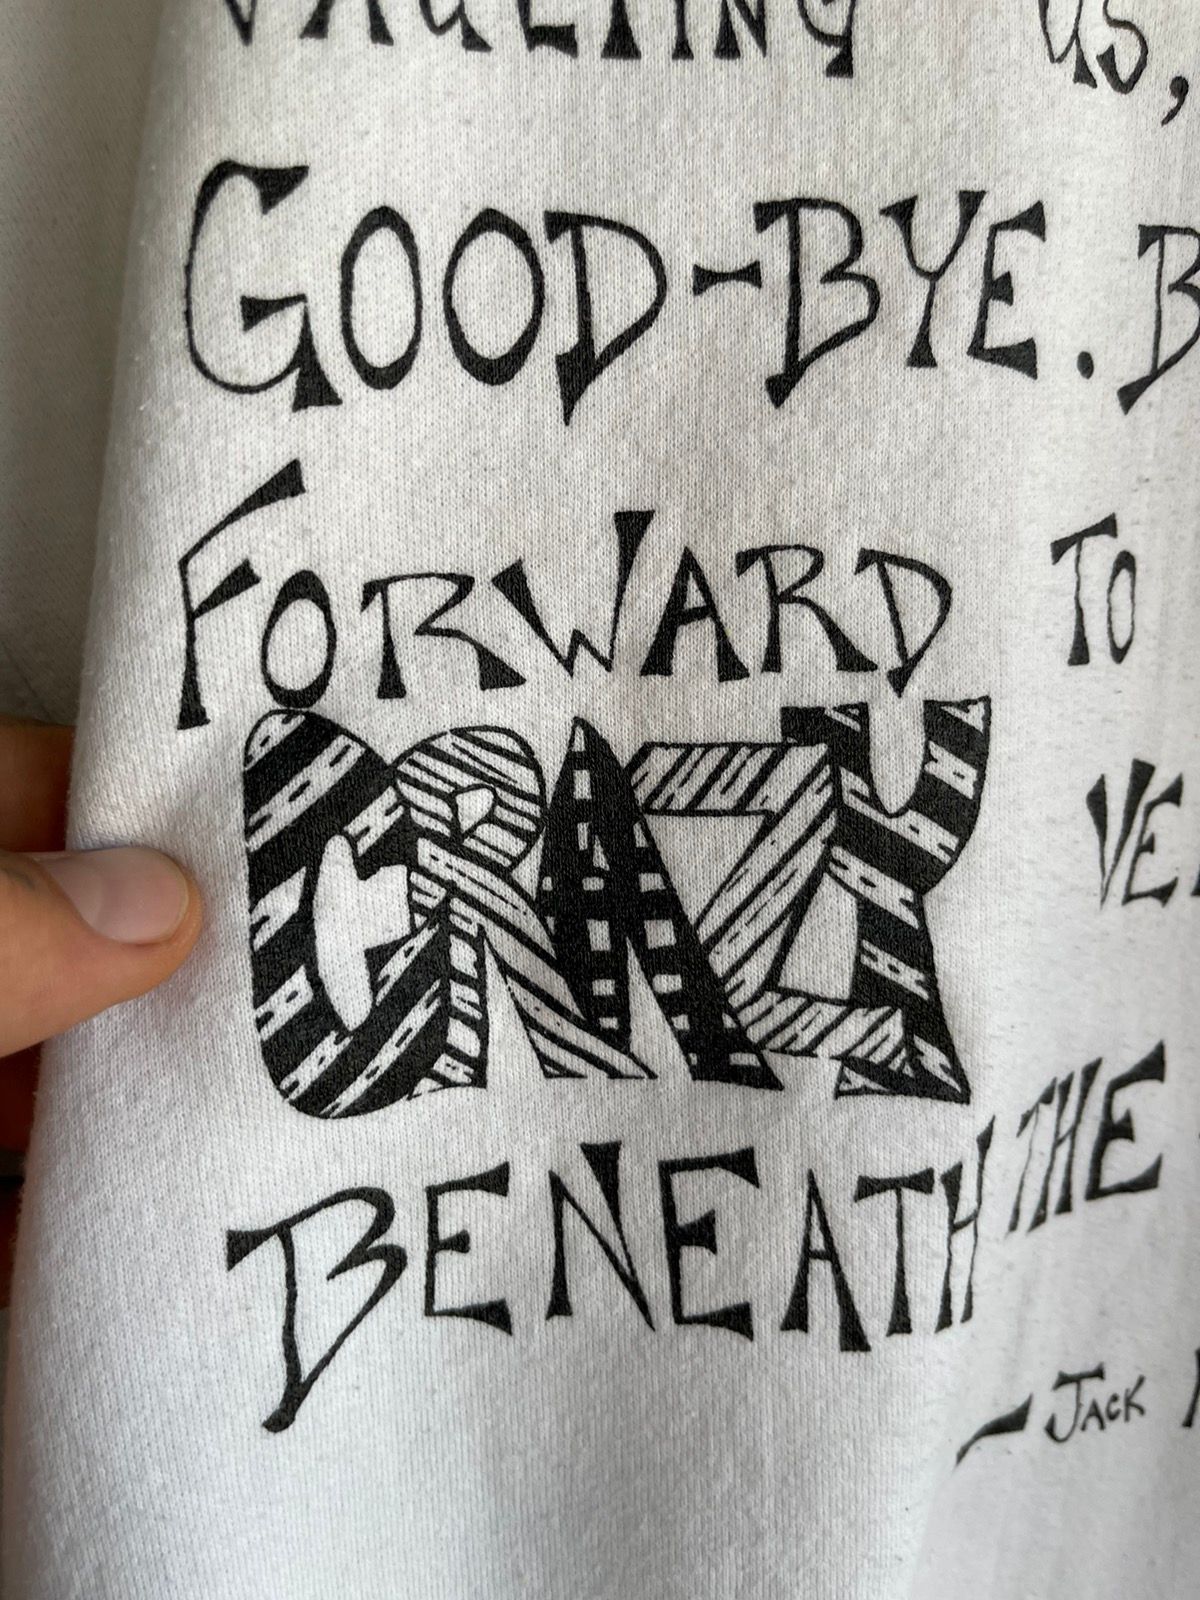 VAULTING US,
GOOD-BYE. B
FORWARD TO
CRAZY VE
BENEATH THE
- JACK